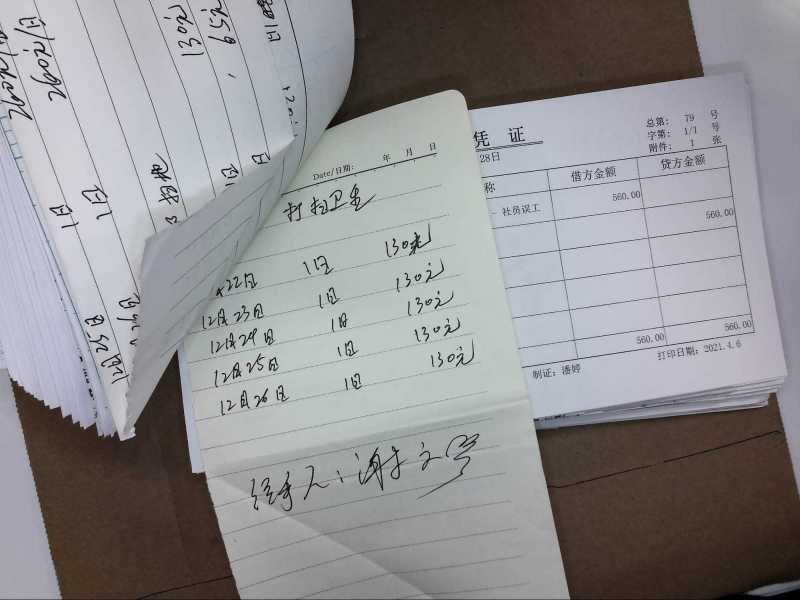 130元
65元
Date/日期: 年 月 日
打扫卫生
22日 1日 130元
12月23日 1日 130元
12月24日 1日 130元
12月25日 1日 130元
12月26日 1日 130元
经手人:谢文宁
凭 证
28日
总第: 79 号
字第: 1/1 号
附件: 1 张
称 借方金额 贷方金额
社员误工 560.00
560.00
560.00 560.00
制证:潘婷 打印日期:2021.4.6
1日
1日
12月25日